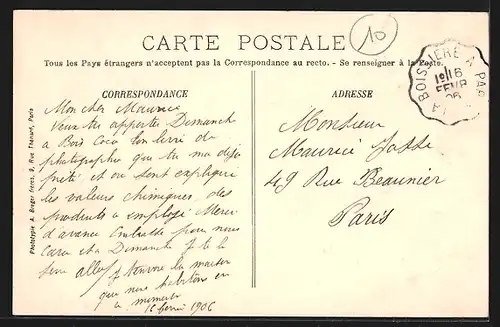 CARTE POSTALE
10
Tous les Pays étrangers n'acceptent pas la Correspondance au recto. - Se renseigner à la Poste.
BOISSIERE A PAR
16
FEVR
06
CORRESPONDANCE
Mon cher Maurice
Veux tu apporter Dimanche
a Bois ton livre de
photographie que tu m'a déja
preté et ou sont expliqué
les valeurs chimiques des
produits a employé Merci
d'avance Embrasse pour nous
Cora et a Dimanche Je te
ferai aller trouver la maison
que nous habitons en
ce moment
16 fevrier 1906
ADRESSE
Monsieur
Maurice
49 Rue Beaunier
Paris
Phototypie A. Breger Frères, 9, Rue Thénard, Paris